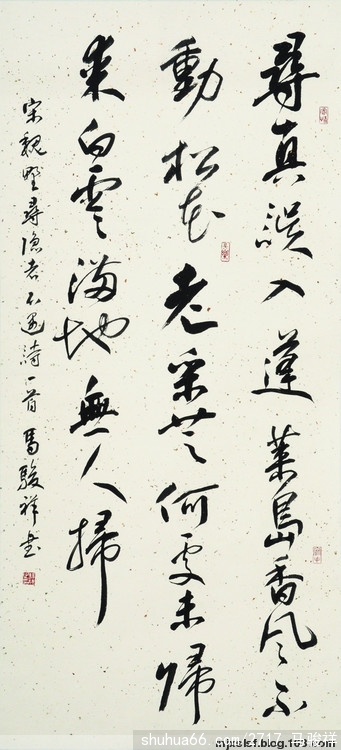 尋真誤入蓬萊島香風不
動松花老采芝何處未歸
來白雲滿地無人掃
宋魏野尋隱者不遇詩一首馬駿祥書
shuhua66.com/2717 马骏祥